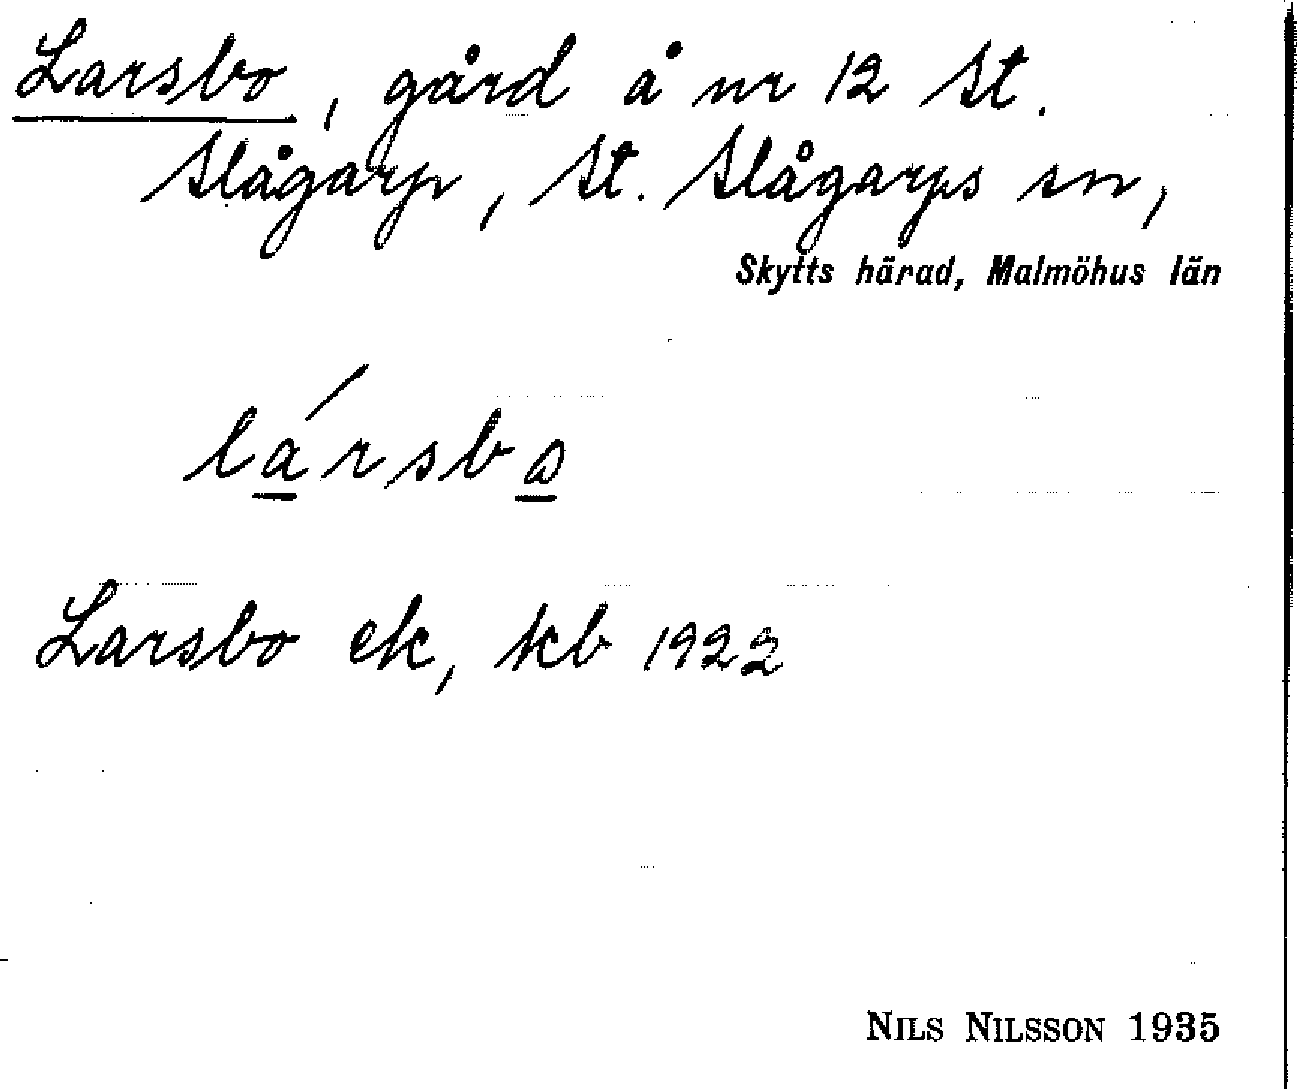 Larsbo, gård å nr 12 St.
Slågarp, St. Slågarps sn,
Skytts härad, Malmöhus län
lársbo
Larsbo ek, kb 1922
NILS NILSSON 1935